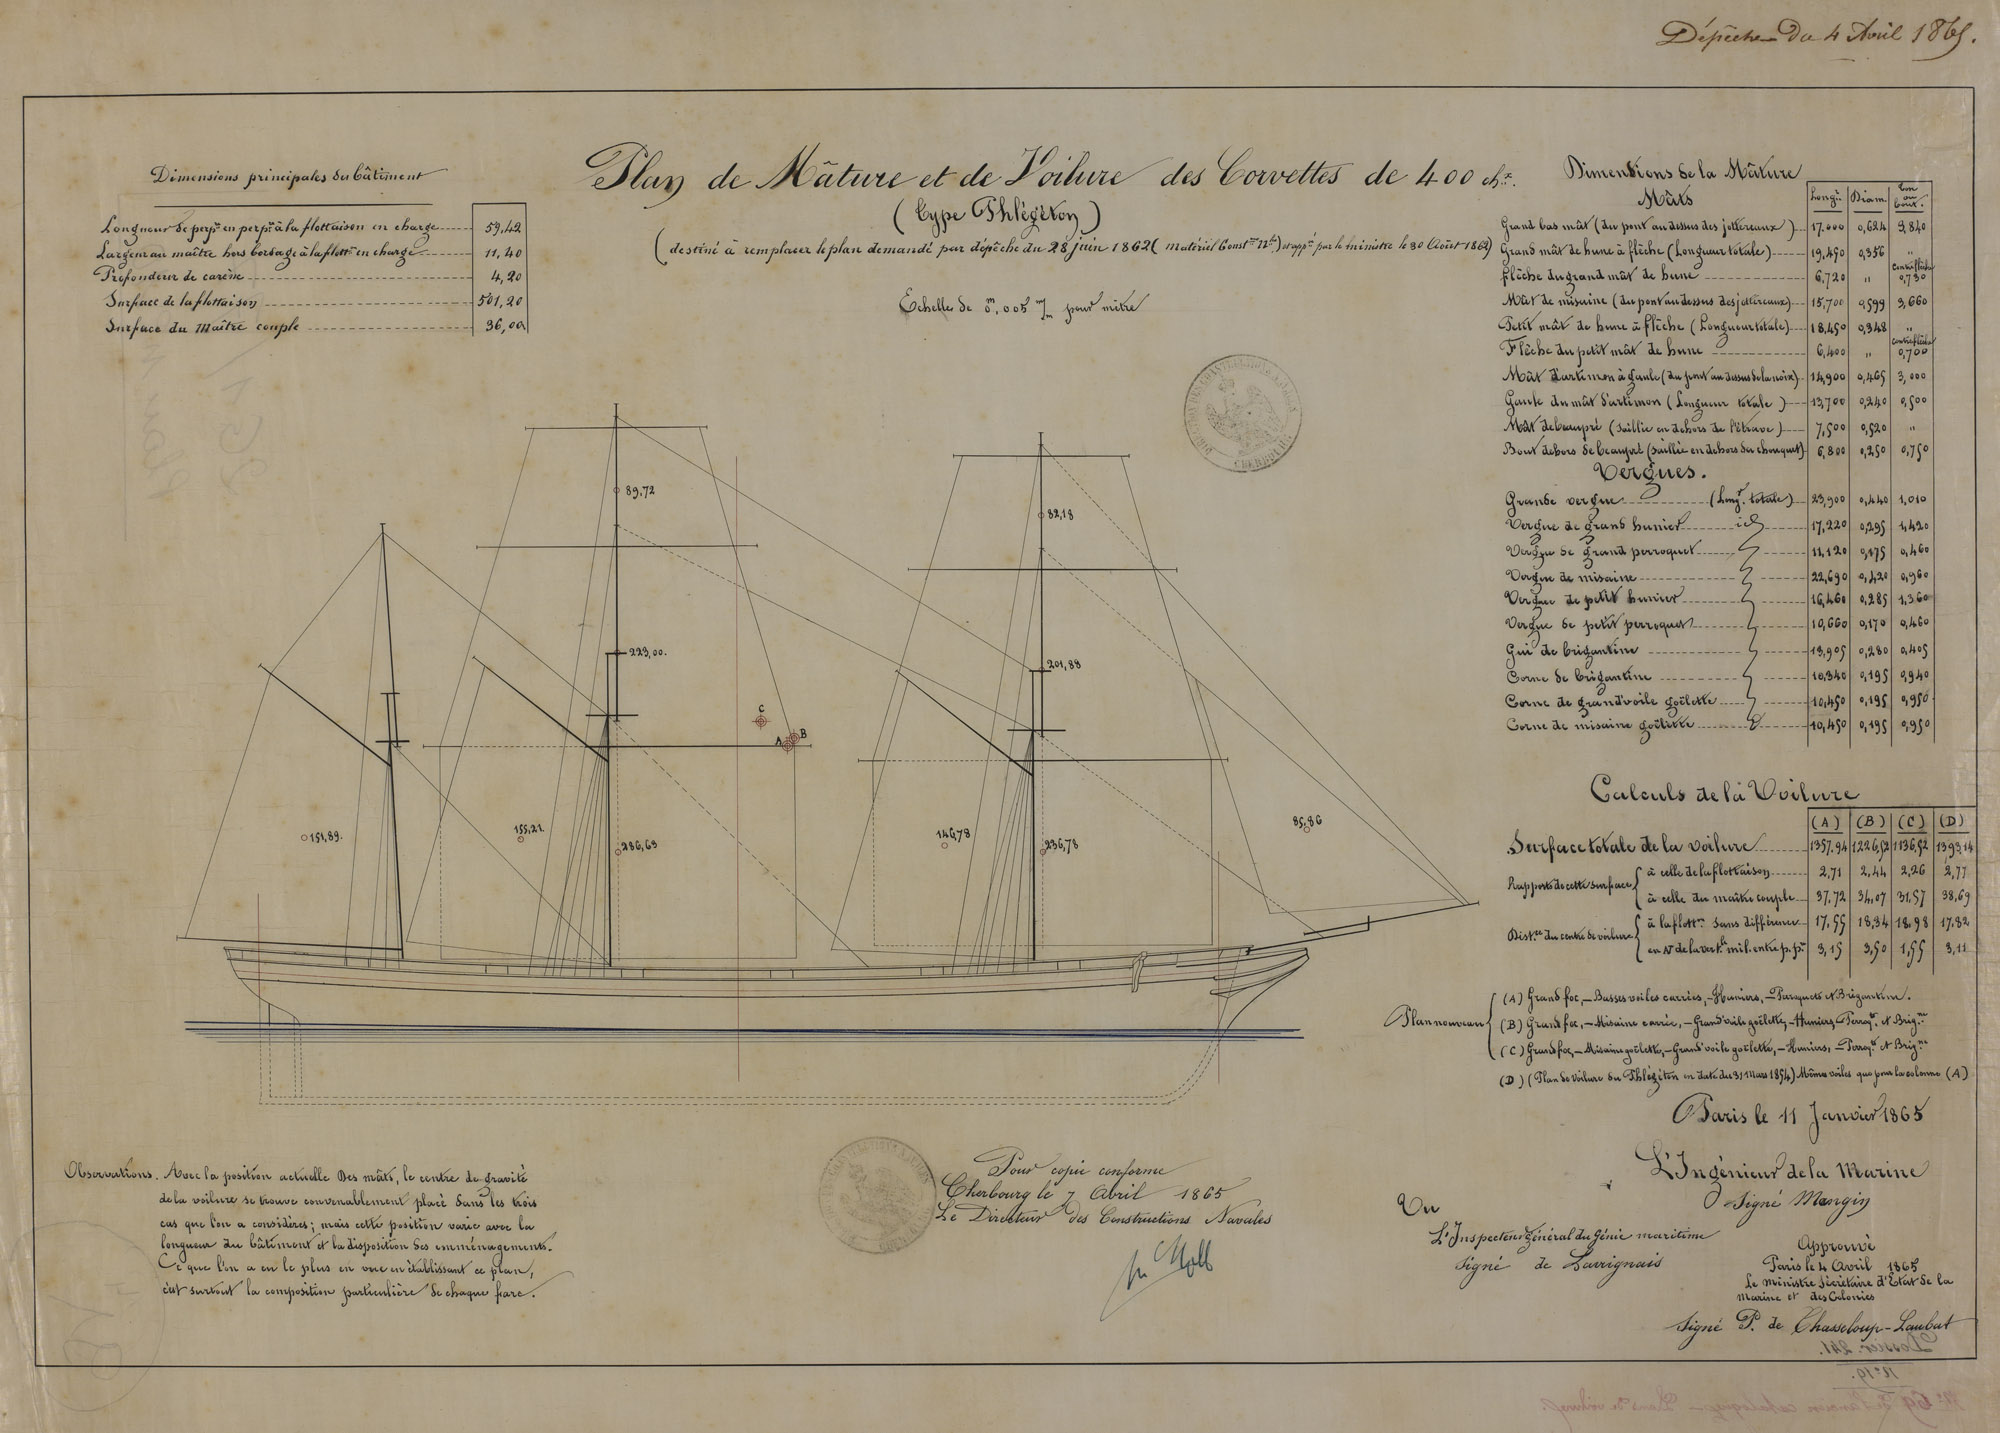 Dépêche du 4 Avril 1865.
Plan de Mâture et de Voilure des Corvettes de 400 chx.
(type Phlégéton)
(destiné à remplacer le plan demandé par dépêche du 28 juin 1862 (Matériel Constons Nles) et appé par le ministre le 30 Août 1862)
Echelle de 0m,005 m/m pour mètre
Dimensions principales du bâtiment
Longueur de perpre en perpre à la flottaison en charge 59,42
Largeur au maître hors bordage à la flottn en charge 11,40
Profondeur de carène 4,20
Surface de la flottaison 501,20
Surface du Maître couple 36,00
Dimensions de la Mâture
Mâts Longr Diam. Ton ou bout.
Grand bas mât (du pont au dessus des jottereaux) 17.000 0,624 3,840
Grand mât de hune à flèche (Longueur totale) 19,450 0,356 "
Flèche du grand mât de hune 6,720 " contreflèche 0,730
Mât de misaine (du pont au dessus des jottereaux) 15,700 0,599 3,660
Petit mât de hune à flèche (Longueur totale) 18,450 0,348 "
Flèche du petit mât de hune 6,400 " contreflèche 0,700
Mât d'artimon à gaule (du pont au dessus de la noix) 14,900 0,465 3,000
Gaule du mât d'artimon (Longueur totale) 13,700 0,240 0,500
Mât de beaupré (saillie en dehors de l'étrave) 7,500 0,520 "
Bout dehors de beaupré (saillie en dehors du chouquet) 6,800 0,250 0,750
Vergues.
Grande vergue (Longr totale) 23,900 0,440 1,010
Vergue de grand hunier id 17,220 0,295 1,420
Vergue de grand perroquet 11,120 0,175 0,460
Vergue de misaine 22,690 0,420 0,960
Vergue de petit hunier 16,460 0,285 1,360
Vergue de petit perroquet 10,660 0,170 0,460
Gui de brigantine 13,905 0,280 0,405
Corne de brigantine 10,340 0,195 0,940
Corne de grand'voile goëlette 10,450 0,195 0,950
Corne de misaine goëlette 10,450 0,195 0,950
89,72
82,18
223,00.
201,88
C
A B
151,89.
155,21.
286,63
146,78
236,78
85,86
Calculs de la Voilure
(A) (B) (C) (D)
Surface totale de la voilure 1357,94 1226,52 1136,52 1393,14
Rapports de cette surface
à celle de la flottaison 2,71 2,44 2,26 2,77
à celle du maître couple 37,72 34,07 31,57 38,69
Distce du centre de voilure
à la flottn sans différence 17,55 18,34 18,98 17,82
en N de la vertle mil. entre p.pres 3,15 3,50 1,55 3,11
Plan nouveau
(A) Grand foc, - Basses voiles carrées, - Huniers, - Perroquets et Brigantine.
(B) Grand foc, - Misaine carrée, - Grand'voile goëlette, - Huniers, Perroqts et Brigne
(C) Grand foc, - Misaine goëlette, - Grand'voile goëlette, - Huniers, - Perroqts et Brigne
(D) (Plan de voilure du Phlégéton en date du 31 Mars 1854) Mêmes voiles que pour la colonne (A)
Paris le 11 Janvier 1865
L'Ingénieur de la Marine
Signé Mangin
Vu
L'Inspecteur Général du Génie maritime
Signé de Lavrignais
Approuvé
Paris le 4 Avril 1865
Le Ministre Secrétaire d'État de la
Marine et des Colonies
Signé P. de Chasseloup-Laubat
Pour copie conforme
Cherbourg le 7 Avril 1865
Le Directeur des Constructions Navales
Observations. Avec la position actuelle des mâts, le centre de gravité
de la voilure se trouve convenablement placé dans les trois
cas que l'on a considérés; mais cette position varie avec la
longueur du bâtiment et la disposition des emménagements.
Ce que l'on a eu le plus en vue en établissant ce plan,
c'est surtout la composition particulière de chaque parc.
Dossier 241.
No 19.